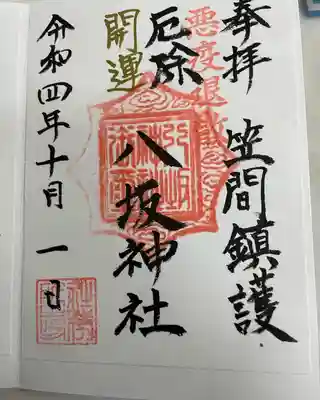 奉拝 笠間鎮護
悪疫退散
厄除
八坂神社
開運
令和四年十月一日